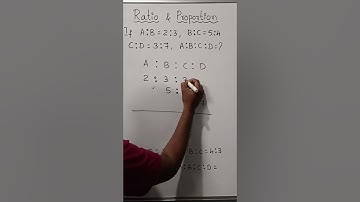 Ratio & Proportion
If A:B=2:3, B:C=5:4
C:D=3:7, A:B:C:D=?
A : B : C : D
2 : 3 : 3
5 :
B:C=4:3
:B:C:D=